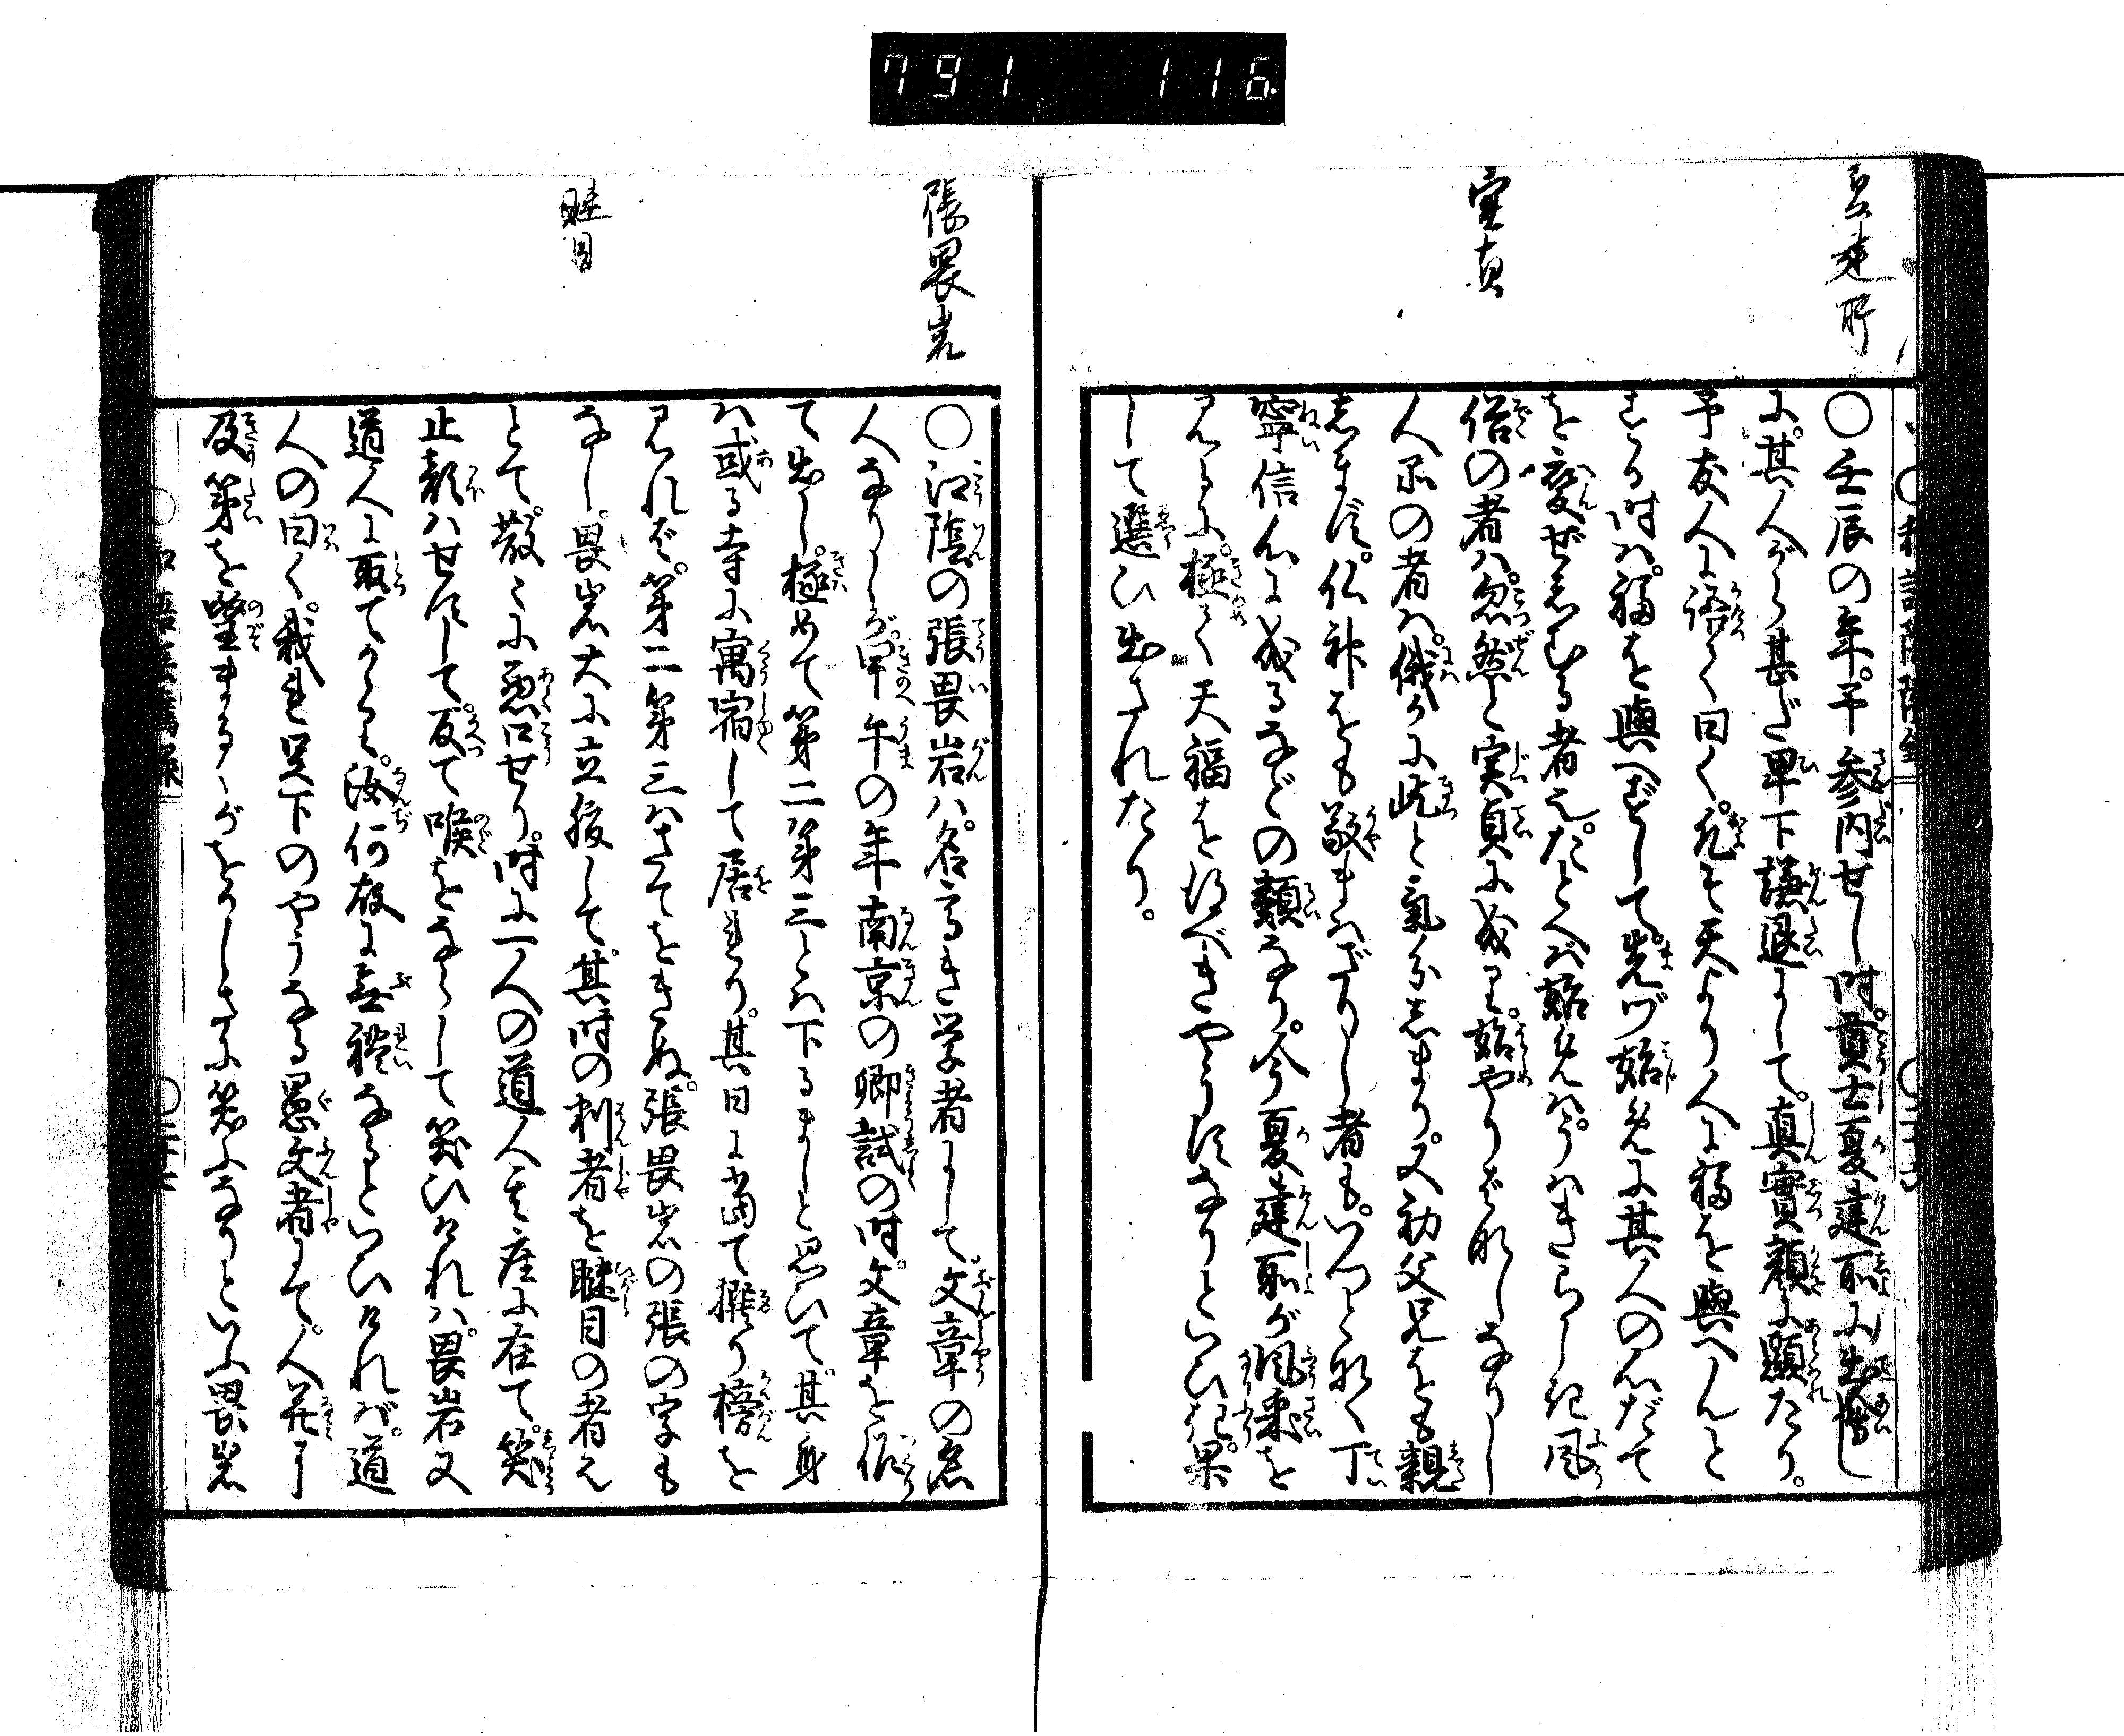 791 116
夏建所
実貞
〇壬辰の年。予参内せし時。貢士夏建所に出會し
に。其人がら甚だ卑下謙退にして。真實顔に顕たり。
予友人に語て曰く。凡そ天より人に福を與へんと
する時ハ。福を與へずして。先づ始めに其人の心だて
を変ぜしむる者也。たとへば始めハうハきらしき風
俗の者ハ。忽然と実貞に成り。始やりばなしなりし
人品の者ハ。俄かに屹と氣分しまり。又初父兄をも親
しまず。仏神をも敬まハざりし者も。いつとなく丁
寧信心に成るなどの類なり。今夏建所が風采を
見るに。極て天福を得べきやうすなりといひき。果
して選ひ出されたり。
張畏岩
睦目
〇江陰の張畏岩ハ。名高き学者にして。文章の名
人なりしが。甲午の年南京の郷試の時。文章を作
て出し。極めて第二第三とハ下るまじと思いて。其身
ハ或る寺に寓宿して居れり。其日に當て撰り榜を
見れば。第二第三ハさてをきぬ。張畏岩の張の字も
なし。畏岩大に立腹して。其時の判者を睦目の者也
とて。散々に悪口せり。時に一人の道人其座に在て。笑
止顔ハせずして。反て喉をならして笑ひけれハ。畏岩又
道人に取てかゝり。汝何故に無禮なるといひけれバ。道
人の曰く。我れ足下のやうなる愚文者にて。人並に
及第を望まるゝがをかしさに笑ふなりといふ畏岩